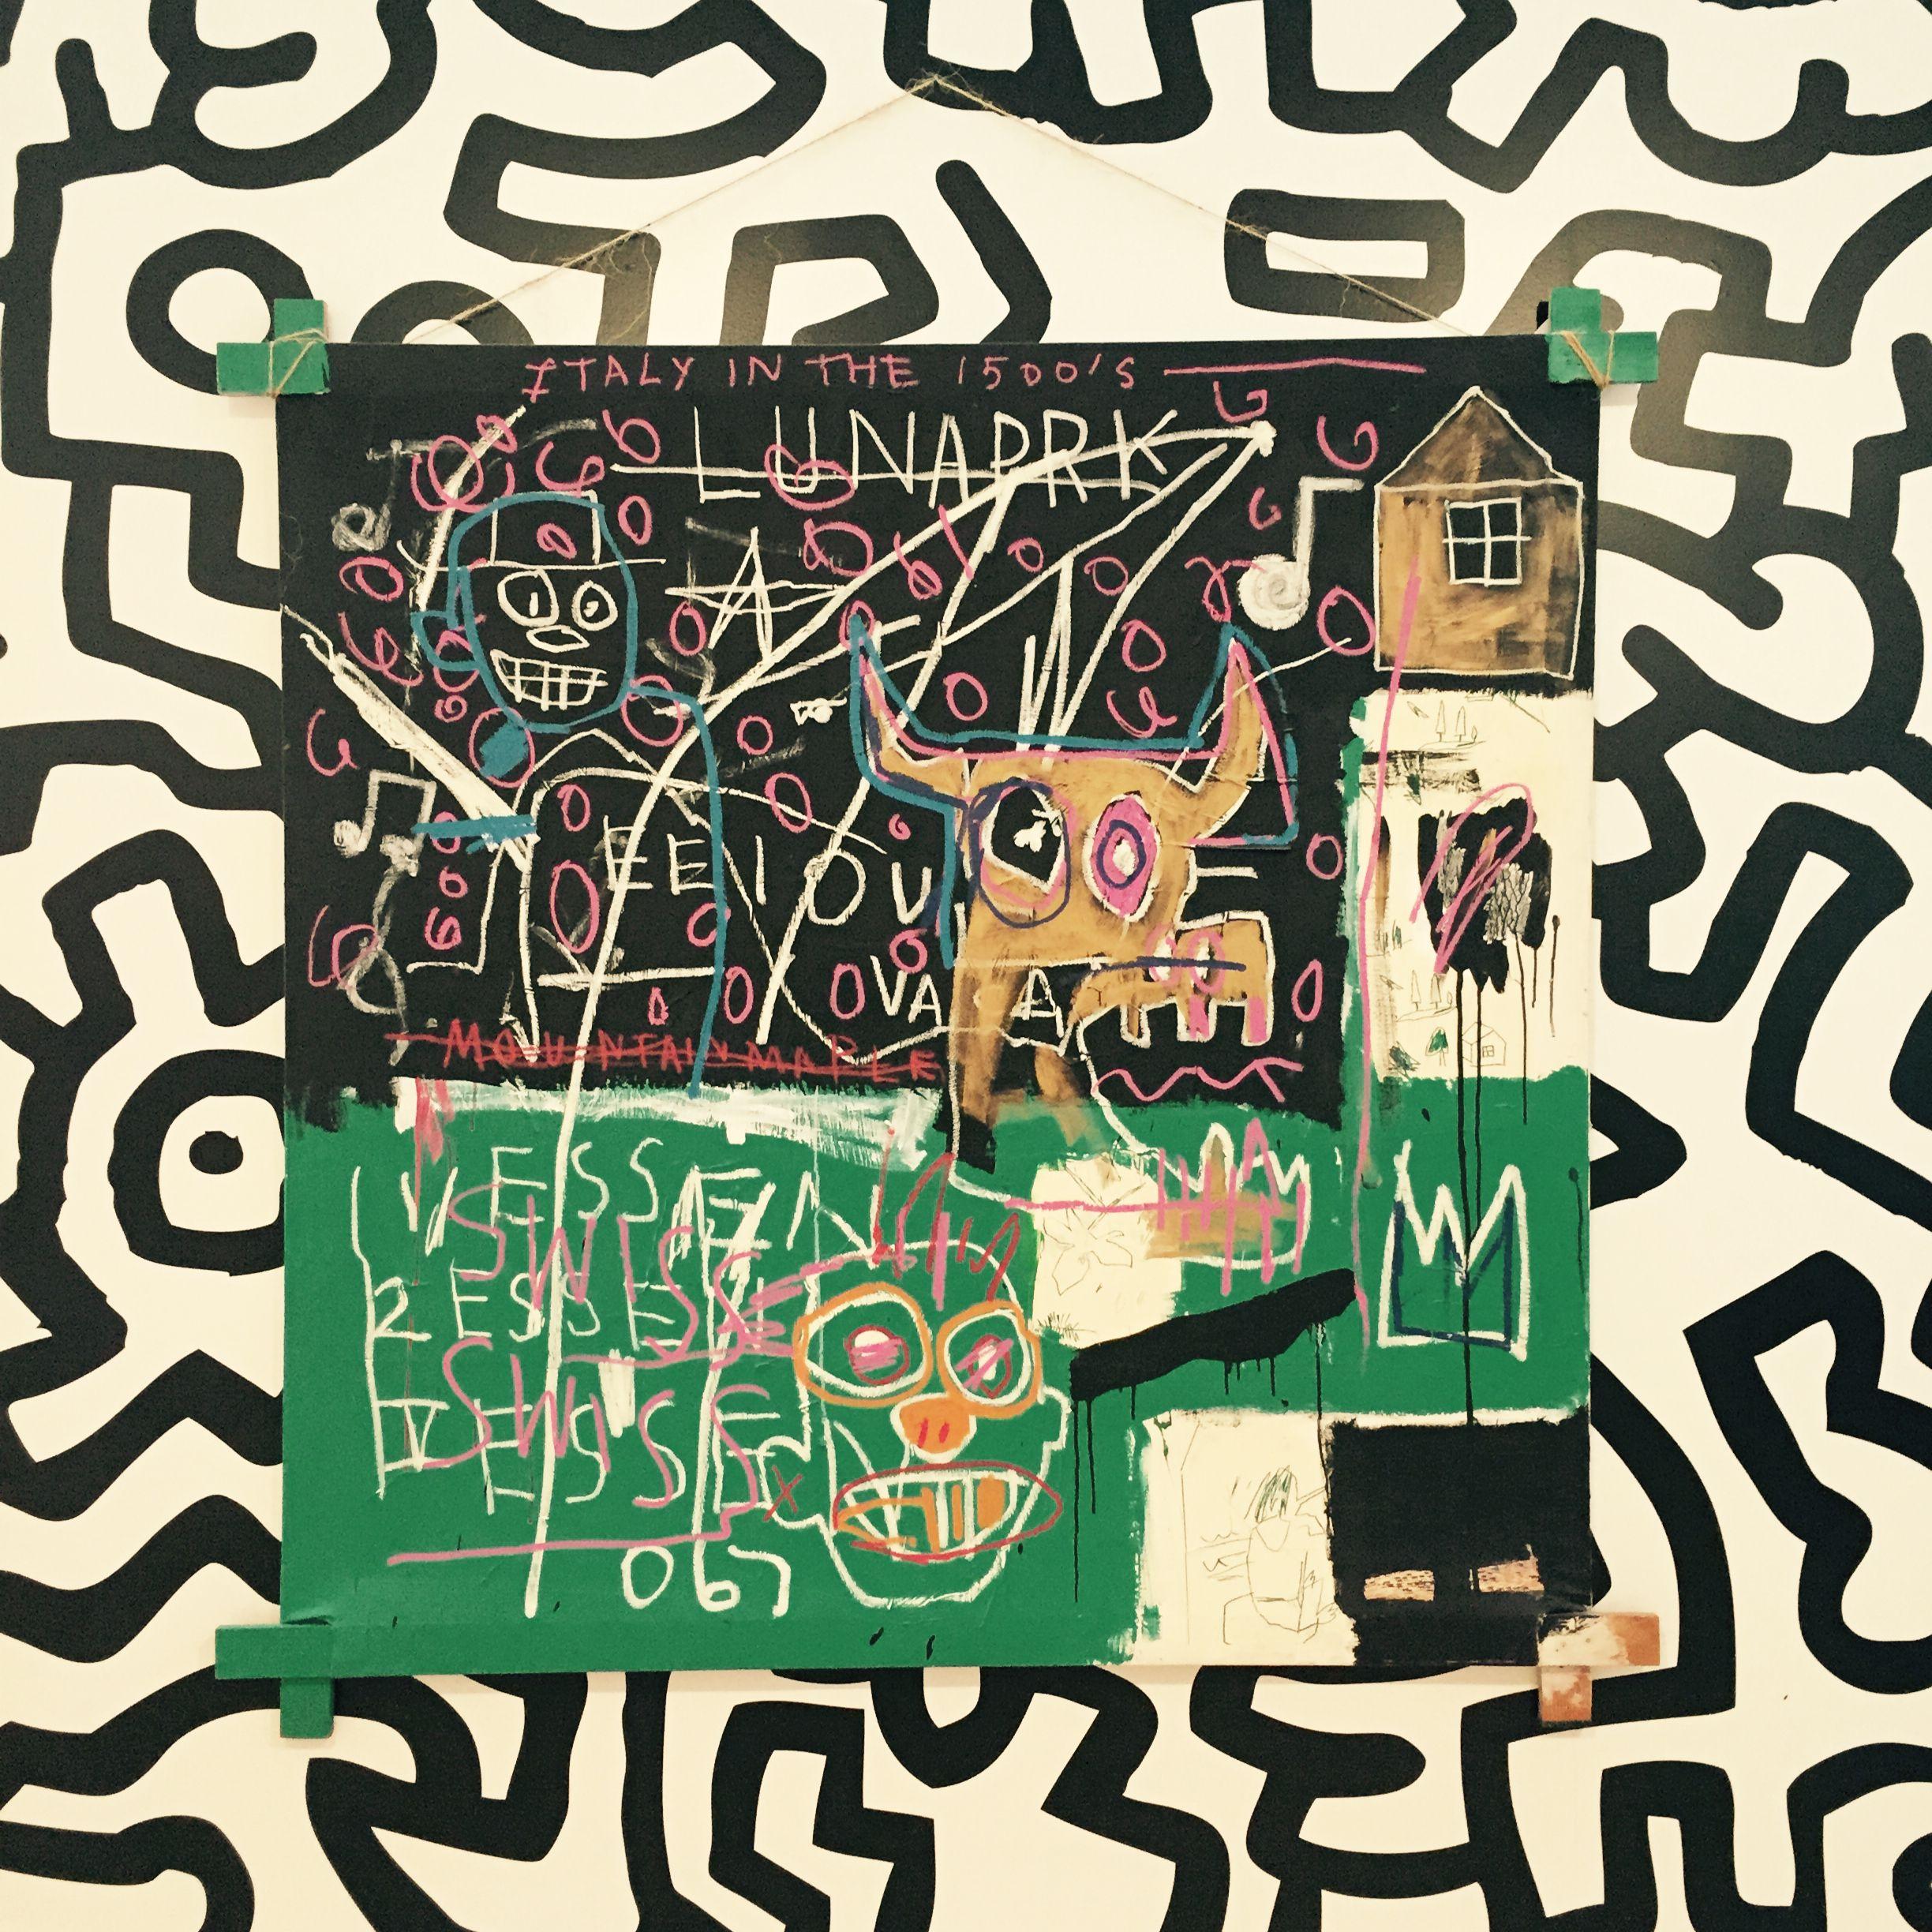 ITALY IN THE 1500'S
LUNAPRK
EEIOU
VA A
MOUNTAIN MAPLE
ESSEN
SWISS
2 ESSEN
SWISS
IV ESSE
067